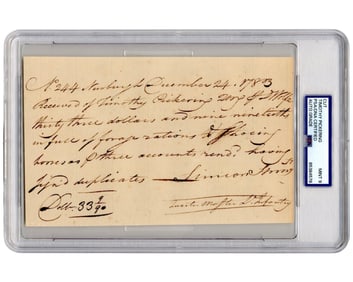 No 244 Newburgh December 24. 1783
Received of Timothy Pickering
thirty three dollars and nine ninetieths
in full of forage rations & shoeing
horses, & three accounts rend? having
sign'd duplicates Simeon
Dolls 33 9/90
CUT
TIMOTHY PICKERING
PSA/DNA CERTIFIED
AUTO GRADE
MINT 9